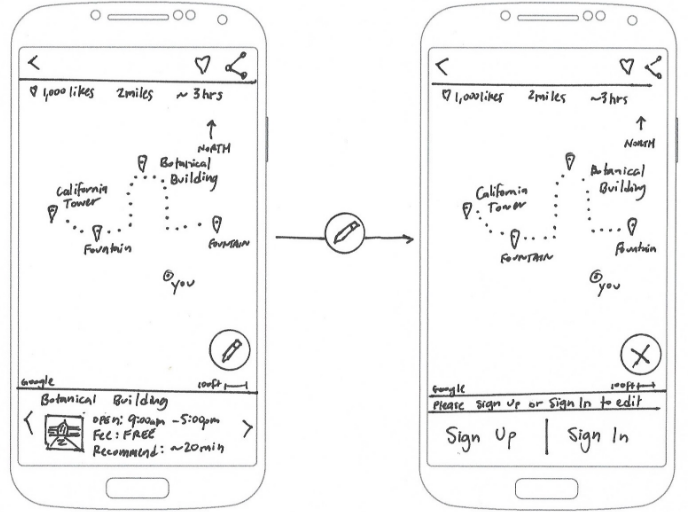 1,000 likes 2miles ~3hrs
NORTH
Botanical
Building
California
Tower
Fountain
FOUNTAIN
you
Google 100ft
Botanical Building
OPEN: 9:00am -5:00pm
Fee: FREE
Recommend: ~20min
1,000 likes 2miles ~3hrs
NORTH
Botanical
Building
California
Tower
FOUNTAIN
Fountain
you
Google 100ft
Please Sign Up or Sign In to edit
Sign Up | Sign In